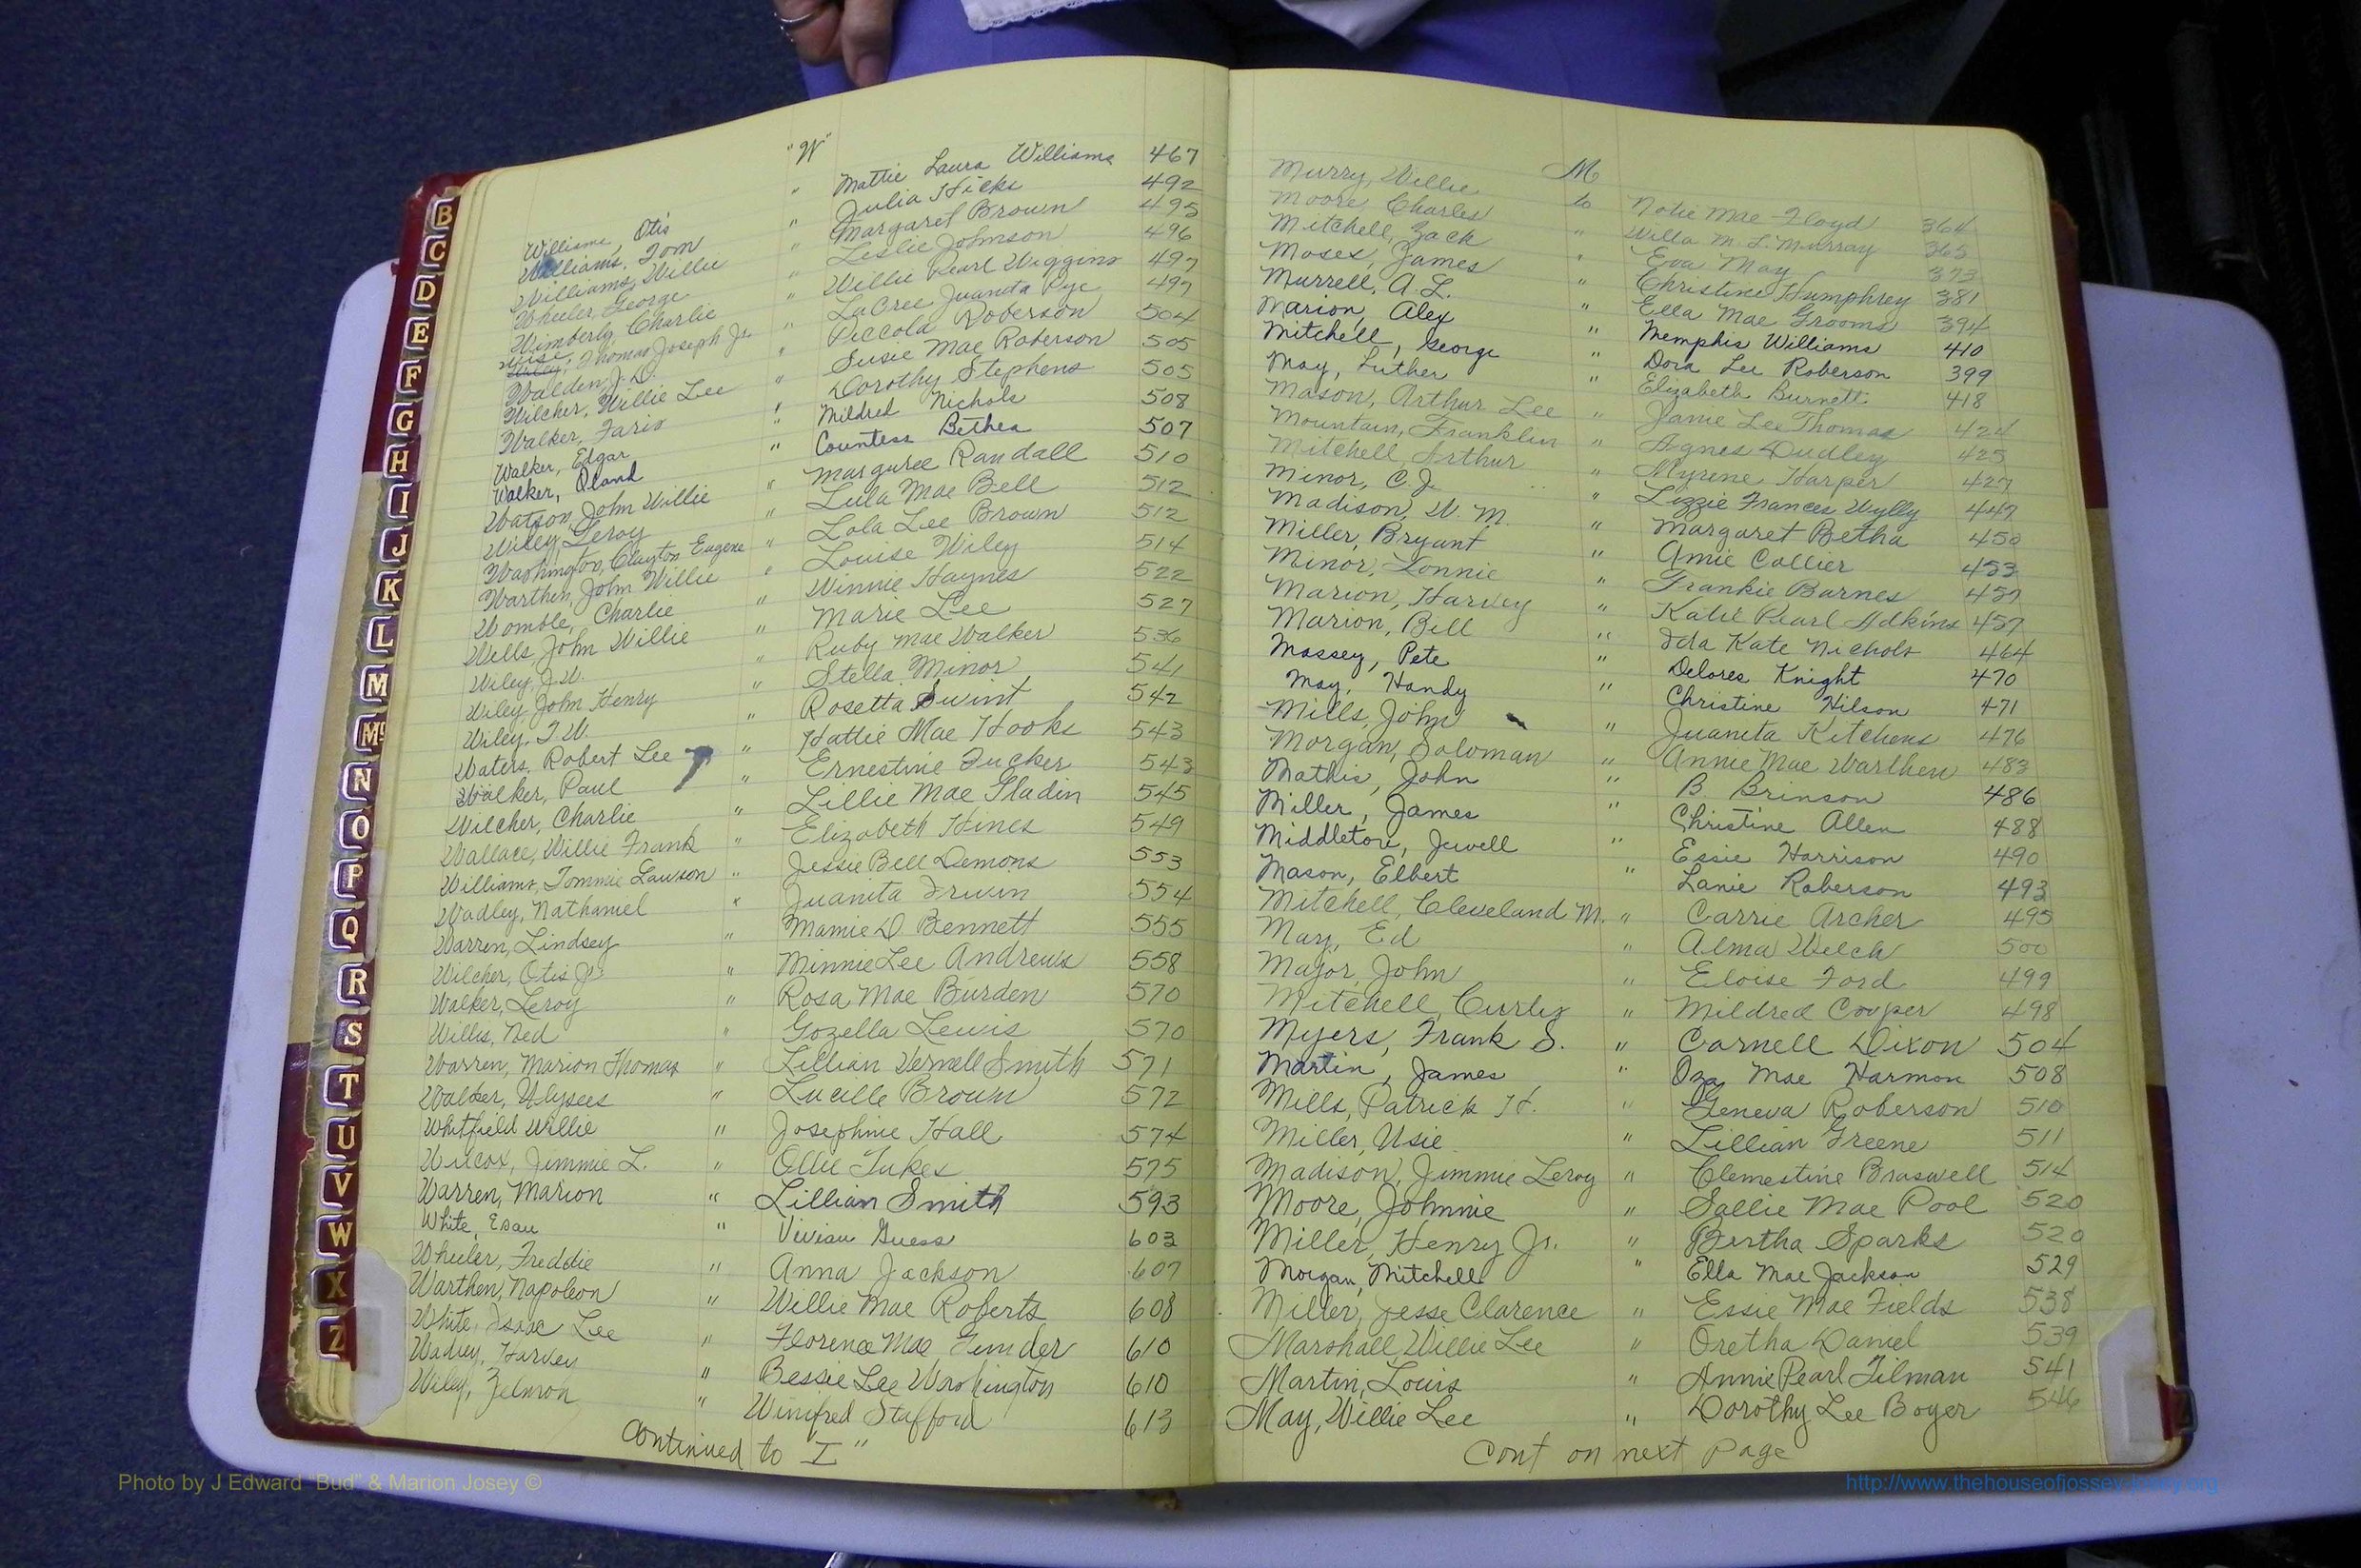 "W"
Williams, Otis " Mattie Laura Williams 467
Williams, Tom " Julia Hicks 492
Williams, Willie " Margaret Brown 495
Wheeler, George " Leslie Johnson 496
Wimberly, Charlie " Willie Pearl Wiggins 497
Wise, Thomas Joseph Jr. " LaCree Juanita Pye 497
Walden, J.D. " Piccola Roberson 504
Wilcher, Willie Lee " Susie Mae Roberson 505
Walker, Faris " Dorothy Stephens 505
Walker, Edgar " Mildred Nichols 508
Walker, Oland " Countess Bethea 507
Watson, John Willie " Marguree Randall 510
Wiley, Leroy " Lula Mae Bell 512
Washington, Clayton Eugene " Lola Lee Brown 512
Warthen, John Willie " Louise Wiley 514
Womble, Charlie " Winnie Haynes 522
Wells, John Willie " Marie Lee 527
Wiley, J.W. " Ruby Mae Walker 536
Wiley, John Henry " Stella Minor 541
Wiley, T.W. " Rosetta Swint 542
Waters, Robert Lee " Hattie Mae Hooks 543
Walker, Paul " Ernestine Tucker 543
Wilcher, Charlie " Lillie Mae Gladin 545
Wallace, Willie Frank " Elizabeth Hines 549
Williams, Tommie Lawson " Jessie Bell Demons 553
Wadley, Nathaniel " Juanita Irwin 554
Warren, Lindsey " Mamie D Bennett 555
Wilcher, Otis Jr " Minnie Lee Andrews 558
Walker, Leroy " Rosa Mae Burden 570
Willis, Ned " Gozella Lewis 570
Warren, Marion Thomas " Lillian Vernell Smith 571
Walker, Ulysees " Lucille Brown 572
Whitfield Willie " Josephine Hall 574
Wilcox, Jimmie L. " Ollie Tukes 575
Warren, Marion " Lillian Smith 593
White, Esau " Vivian Guess 603
Wheeler, Freddie " Anna Jackson 607
Warthen, Napoleon " Willie Mae Roberts 608
White, Isaac Lee " Florence Mae 610
Wadley, Harvey " Bessie Lee Washington 610
Wiley, Zelmon " Winifred Stafford 613
Continued to "I"
B
C
D
E
F
G
H
I
J
K
L
M
Mc
N
O
P
Q
R
S
T
U
V
W
X
Z
M
Murry, Willie to Notie Mae Floyd 364
Moore, Charles " Willa M. L. Murray 365
Mitchell, Zack " Eva May 373
Moses, James " Christine Humphrey 381
Murrell, A.L. " Ella Mae Grooms 394
Marion, Alex " Memphis Williams 410
Mitchell, George " Dora Lee Roberson 399
May, Luther " Elizabeth Burnett 418
Mason, Arthur Lee " Janie Lee Thomas 424
Mountain, Franklin " Agnes Dudley 425
Mitchell, Arthur " Myrene Harper 427
Minor, C.J. " Lizzie Frances Wylly 447
Madison, W. M. " Margaret Betha 450
Miller, Bryant " Amie Collier 453
Minor, Lonnie " Frankie Barnes 457
Marion, Harvey " Katie Pearl Adkins 457
Marion, Bill " Ida Kate Nichols 464
Massey, Pete " Delores Knight 470
May, Handy " Christine Hilson 471
Mills, John " Juanita Kitchens 476
Morgan, Soloman " Annie Mae Warthen 483
Mathis, John " B. Brinson 486
Miller, James " Christine Allen 488
Middleton, Jewell " Essie Harrison 490
Mason, Elbert " Lanie Roberson 493
Mitchell, Cleveland M. " Carrie Archer 495
May, Ed " Alma Welch 500
Major, John " Eloise Ford 499
Mitchell, Curtis " Mildred Cooper 498
Myers, Frank S. " Carnell Dixon 504
Martin, James " Oza Mae Harmon 508
Mills, Patrick H. " Geneva Roberson 510
Miller, Usie " Lillian Greene 511
Madison, Jimmie Leroy " Clemestine Braswell 514
Moore, Johnnie " Sallie Mae Pool 520
Miller, Henry Jr. " Bertha Sparks 520
Morgan, Mitchell " Ella Mae Jackson 529
Miller, Jesse Clarence " Essie Mae Fields 538
Marshall, Willie Lee " Oretha Daniel 539
Martin, Louis " Annie Pearl Tilman 541
May, Willie Lee " Dorothy Lee Boyer 546
Cont on next page
Photo by J Edward "Bud" & Marion Josey ©
http://www.thehouseofjossey-josey.org